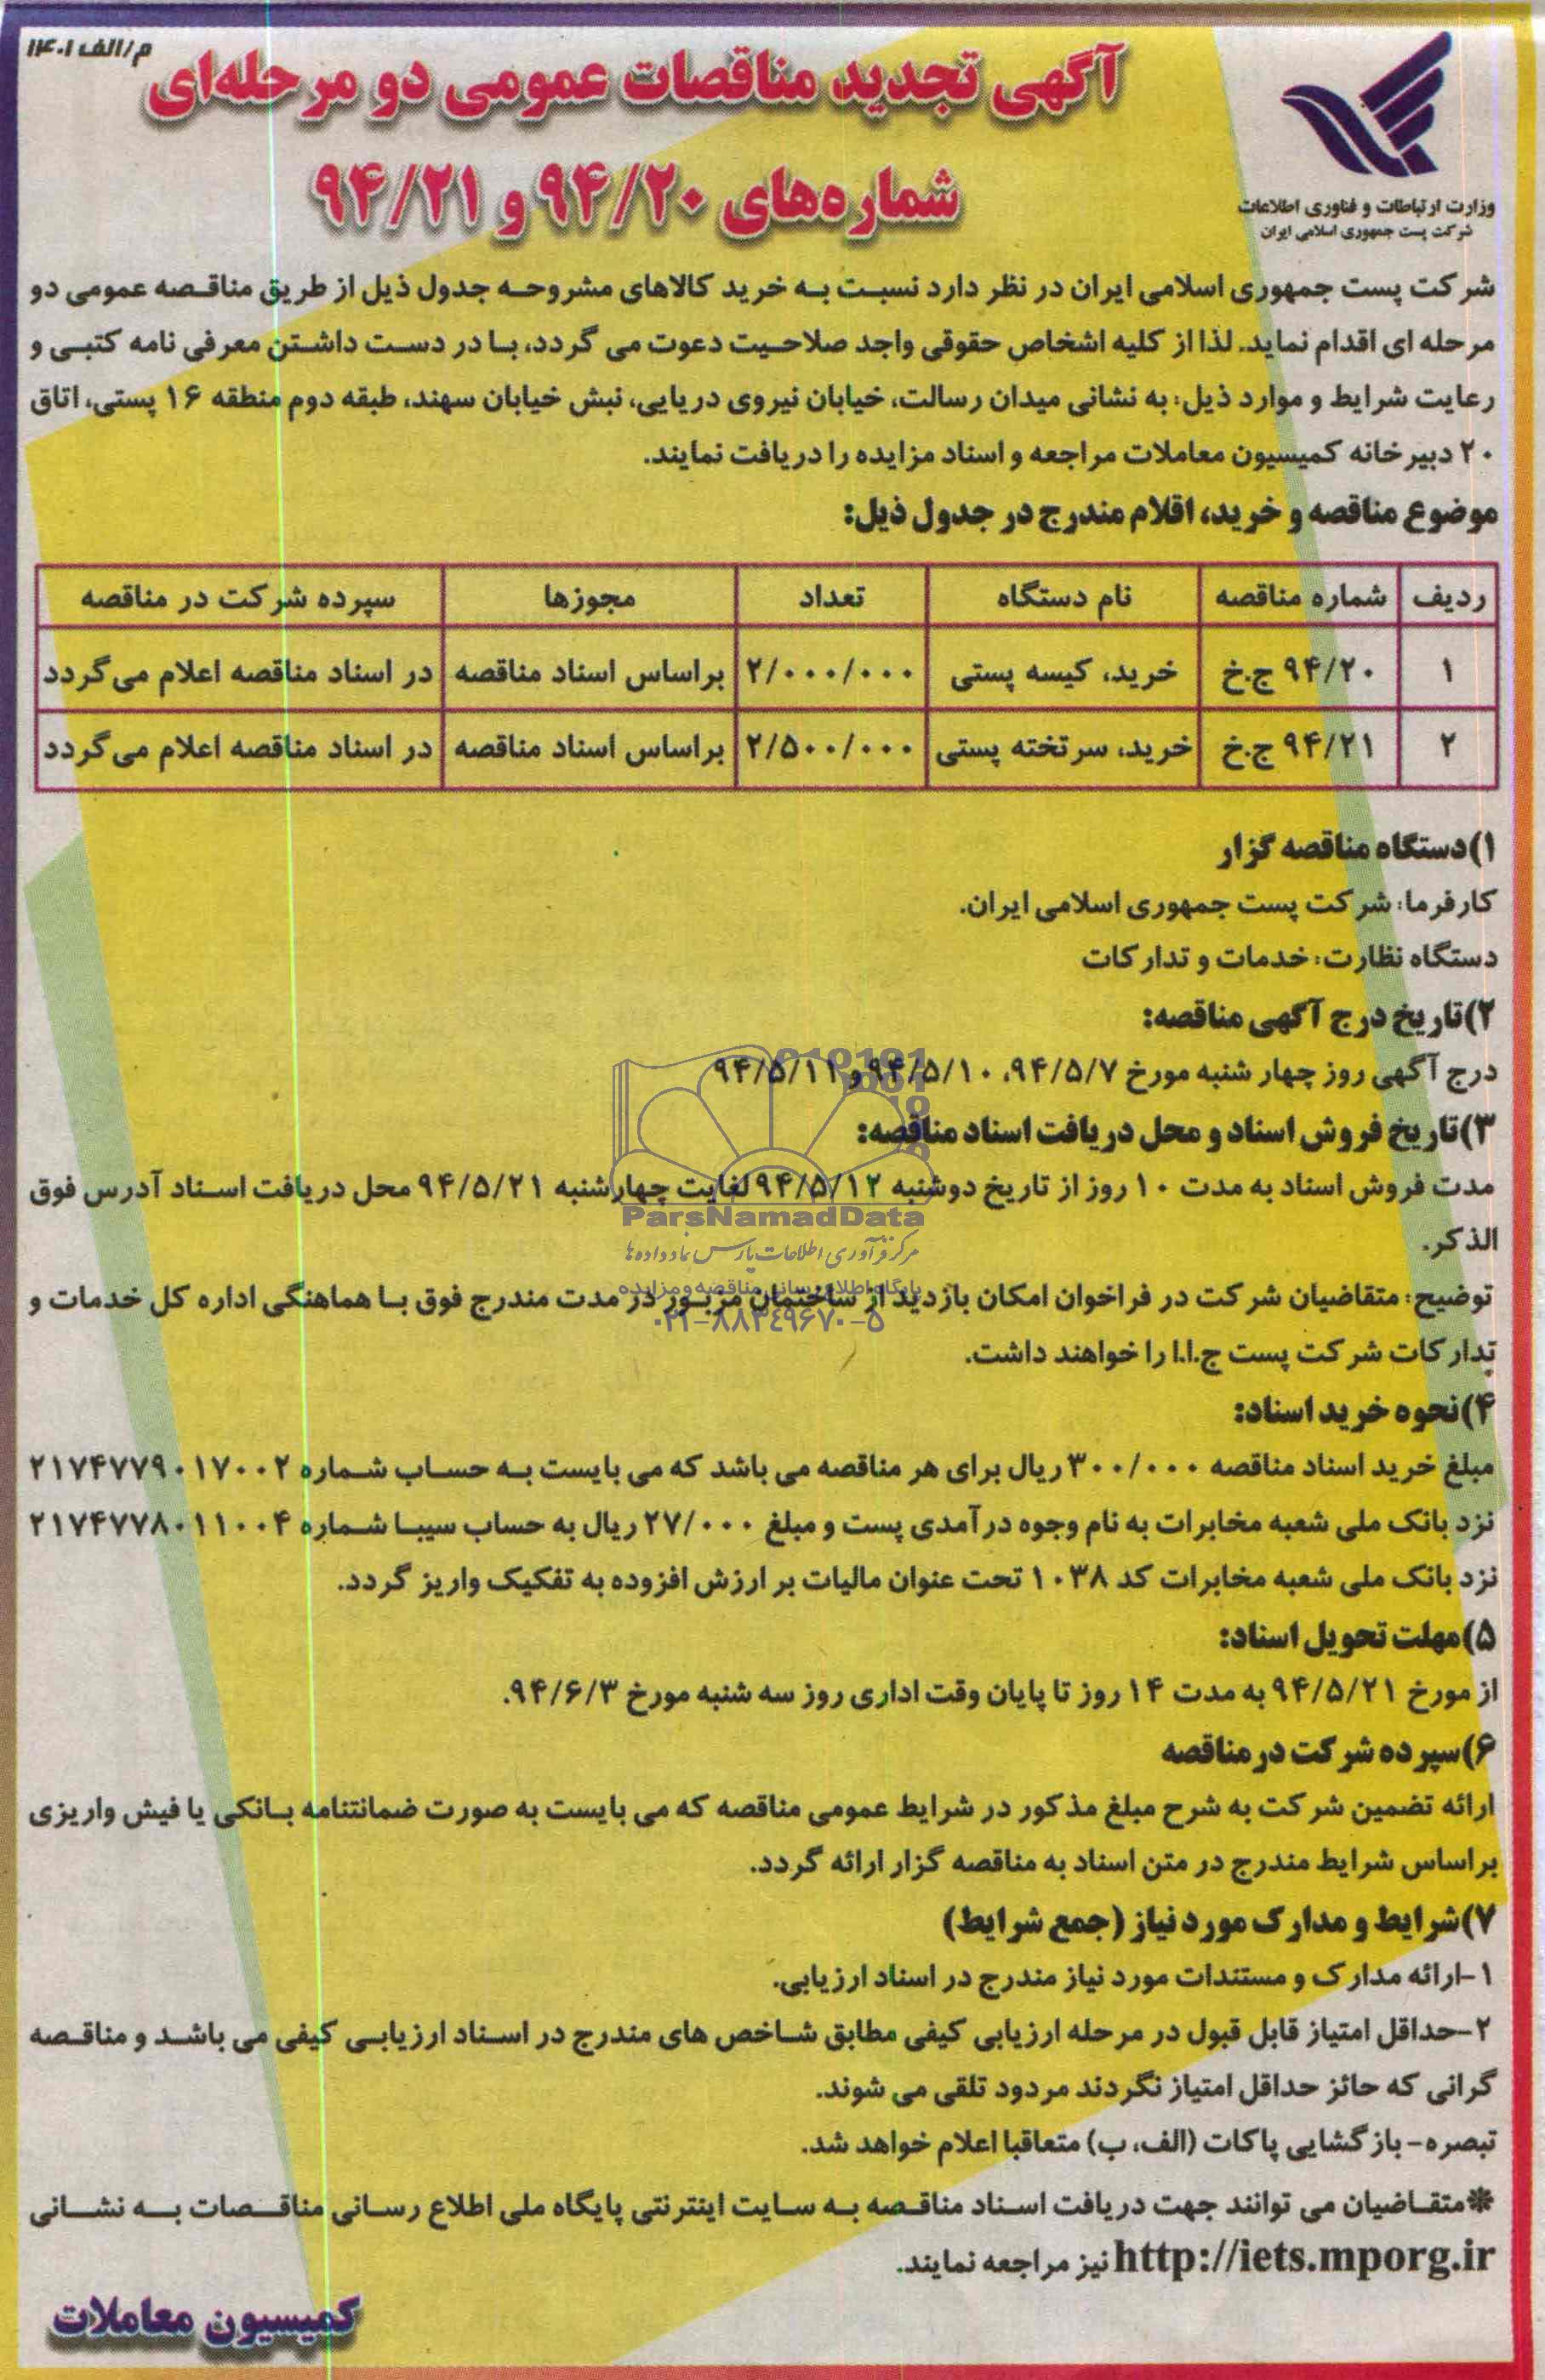 م/الف ۱۴۰۱
آگهی تجدید مناقصات عمومی دو مرحله‌ای
شماره‌های ۹۴/۲۰ و ۹۴/۲۱
وزارت ارتباطات و فناوری اطلاعات
شرکت پست جمهوری اسلامی ایران
شرکت پست جمهوری اسلامی ایران در نظر دارد نسبت به خرید کالاهای مشروحه جدول ذیل از طریق مناقصه عمومی دو
مرحله ای اقدام نماید. لذا از کلیه اشخاص حقوقی واجد صلاحیت دعوت می گردد، با در دست داشتن معرفی نامه کتبی و
رعایت شرایط و موارد ذیل: به نشانی میدان رسالت، خیابان نیروی دریایی، نبش خیابان سهند، طبقه دوم منطقه ۱۶ پستی، اتاق
۲۰ دبیرخانه کمیسیون معاملات مراجعه و اسناد مزایده را دریافت نمایند.
موضوع مناقصه و خرید، اقلام مندرج در جدول ذیل:
ردیف شماره مناقصه نام دستگاه تعداد مجوزها سپرده شرکت در مناقصه
۱ ۹۴/۲۰ ج.خ خرید، کیسه پستی ۲/۰۰۰/۰۰۰ براساس اسناد مناقصه در اسناد مناقصه اعلام می‌گردد
۲ ۹۴/۲۱ ج.خ خرید، سرتخته پستی ۲/۵۰۰/۰۰۰ براساس اسناد مناقصه در اسناد مناقصه اعلام می‌گردد
۱)دستگاه مناقصه گزار
کارفرما: شرکت پست جمهوری اسلامی ایران.
دستگاه نظارت: خدمات و تدارکات
۲)تاریخ درج آگهی مناقصه:
درج آگهی روز چهار شنبه مورخ ۹۴/۵/۷، ۹۴/۵/۱۰ و ۹۴/۵/۱۱
۳)تاریخ فروش اسناد و محل دریافت اسناد مناقصه:
مدت فروش اسناد به مدت ۱۰ روز از تاریخ دوشنبه ۹۴/۵/۱۲ لغایت چهارشنبه ۹۴/۵/۲۱ محل دریافت اسناد آدرس فوق
الذکر.
توضیح: متقاضیان شرکت در فراخوان امکان بازدید از ساختمان مزبور در مدت مندرج فوق با هماهنگی اداره کل خدمات و
تدارکات شرکت پست ج.ا.ا را خواهند داشت.
ParsNamadData
مرکز فرآوری اطلاعات پارس نماد داده‌ها
پایگاه اطلاع رسانی مناقصه و مزایده
۰۲۱-۸۸۳۴۹۶۷۰-۵
۴)نحوه خرید اسناد:
مبلغ خرید اسناد مناقصه ۳۰۰/۰۰۰ ریال برای هر مناقصه می باشد که می بایست به حساب شماره ۲۱۷۴۷۷۹۰۱۷۰۰۲
نزد بانک ملی شعبه مخابرات به نام وجوه درآمدی پست و مبلغ ۲۷/۰۰۰ ریال به حساب سیبا شماره ۲۱۷۴۷۷۸۰۱۱۰۰۴
نزد بانک ملی شعبه مخابرات کد ۱۰۳۸ تحت عنوان مالیات بر ارزش افزوده به تفکیک واریز گردد.
۵)مهلت تحویل اسناد:
از مورخ ۹۴/۵/۲۱ به مدت ۱۴ روز تا پایان وقت اداری روز سه شنبه مورخ ۹۴/۶/۳.
۶)سپرده شرکت در مناقصه
ارائه تضمین شرکت به شرح مبلغ مذکور در شرایط عمومی مناقصه که می بایست به صورت ضمانتنامه بانکی یا فیش واریزی
براساس شرایط مندرج در متن اسناد به مناقصه گزار ارائه گردد.
۷)شرایط و مدارک مورد نیاز (جمع شرایط)
۱-ارائه مدارک و مستندات مورد نیاز مندرج در اسناد ارزیابی.
۲-حداقل امتیاز قابل قبول در مرحله ارزیابی کیفی مطابق شاخص های مندرج در اسناد ارزیابی کیفی می باشد و مناقصه
گرانی که حائز حداقل امتیاز نگردند مردود تلقی می شوند.
تبصره- بازگشایی پاکات (الف، ب) متعاقبا اعلام خواهد شد.
*متقاضیان می توانند جهت دریافت اسناد مناقصه به سایت اینترنتی پایگاه ملی اطلاع رسانی مناقصات به نشانی
http://iets.mporg.ir نیز مراجعه نمایند.
کمیسیون معاملات